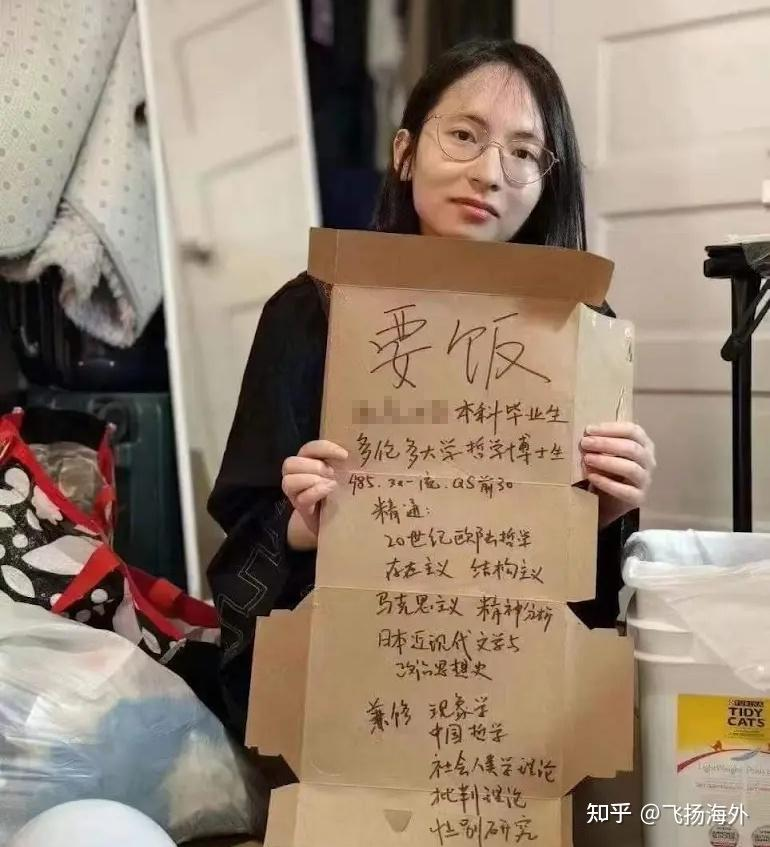 要饭
本科毕业生
多伦多大学哲学博士生
985.双一流.QS前30
精通:
20世纪欧陆哲学
存在主义 结构主义
马克思主义 精神分析
日本近现代文学与
政治思想史
兼修 现象学
中国哲学
社会人类学理论
批判理论
性别研究
PURINA
TIDY
CATS
LightWeight
知乎 @飞扬海外